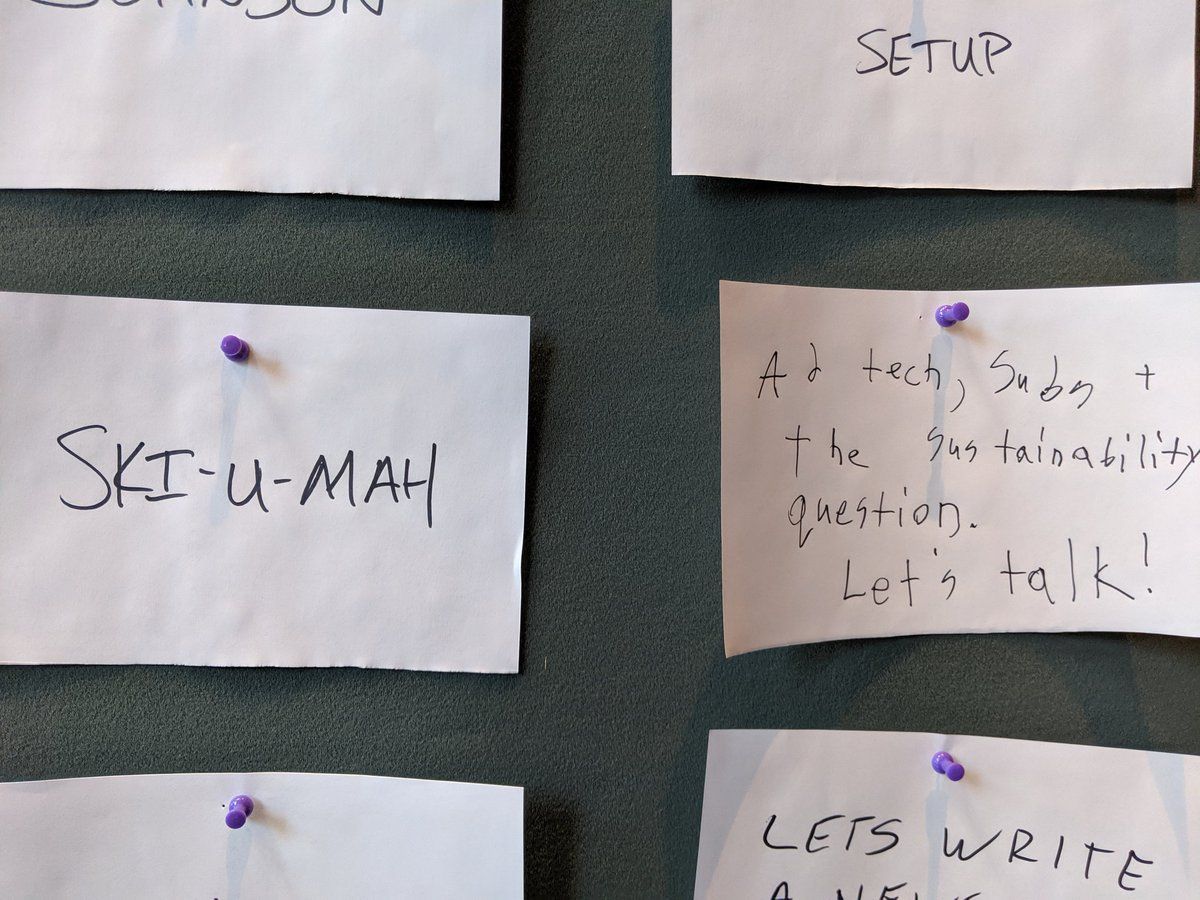 JOHNSON
SETUP
SKI-U-MAH
Ad tech, Subs +
the sustainability
question.
Let's talk!
LETS WRITE
A NEWS